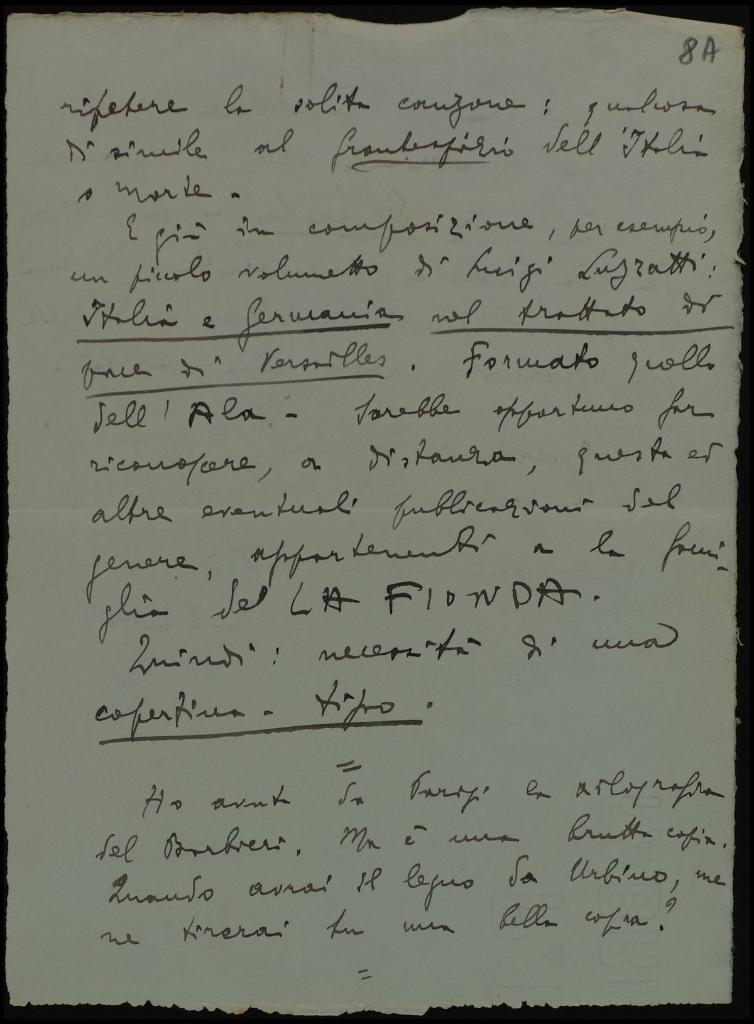 8A
ripetere la solita canzone: qualcosa
di simile al frontespizio dell'Italia
o morte -
E già in composizione, per esempio,
un piccolo volumetto di Luigi Luzzatti:
Italia e Germania nel trattato di
pace di Versailles. Formato quello
dell'Ala - Sarebbe opportuno far
riconoscere, a distanza, questa ed
altre eventuali pubblicazioni del
genere, appartenenti a la fami-
glia del LA FIONDA.
Quindi: necessità di una
copertina - tipo.
=
Ho avuta da Parigi la xilografia
del Barbieri. Ma è una brutta copia.
Quando avrai il legno da Urbino, me
ne tirerai tu una bella copia?
=